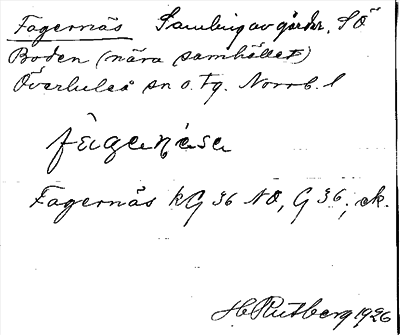 Fagernäs Samling av gårdar, SÖ
Boden (nära samhället)
Överluleå sn o. tg. Norrb. l
Fagernäs kG 36 NO, G 36; ek.
H Rutberg 1926